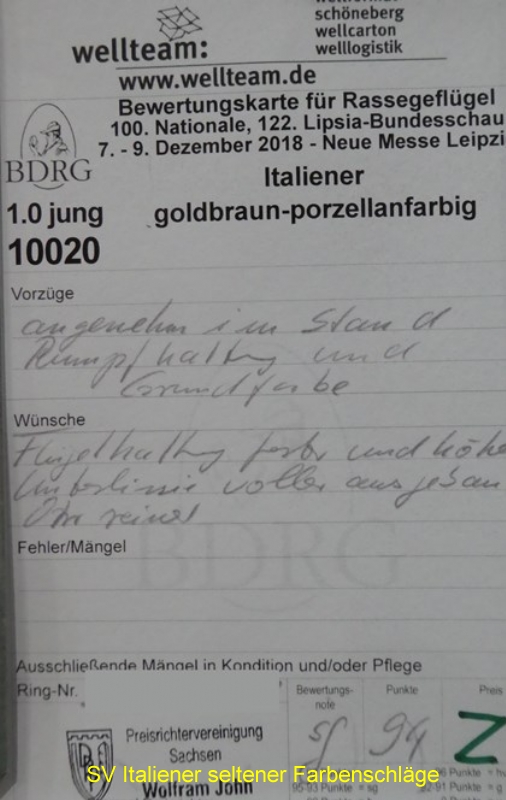 schöneberg
wellcarton
welllogistik
wellteam:
www.wellteam.de
Bewertungskarte für Rassegeflügel
100. Nationale, 122. Lipsia-Bundesschau
7. - 9. Dezember 2018 - Neue Messe Leipzi
BDRG
Italiener
1.0 jung goldbraun-porzellanfarbig
10020
Vorzüge
angenehm im Stand
Rumpfhaltung und
Grundfarbe
Wünsche
Flügelhaltung fester und höhe
Unterlinie voller ausgebau
Ohr reiner
Fehler/Mängel
BDRG
Ausschließende Mängel in Kondition und/oder Pflege
Ring-Nr.
Bewertungs-
note
Punkte
Preis
sg 94 Z
Preisrichtervereinigung
Sachsen
Wolfram John
96 Punkte = hv
95-93 Punkte = sg
92-91 Punkte = g
SV Italiener seltener Farbenschläge